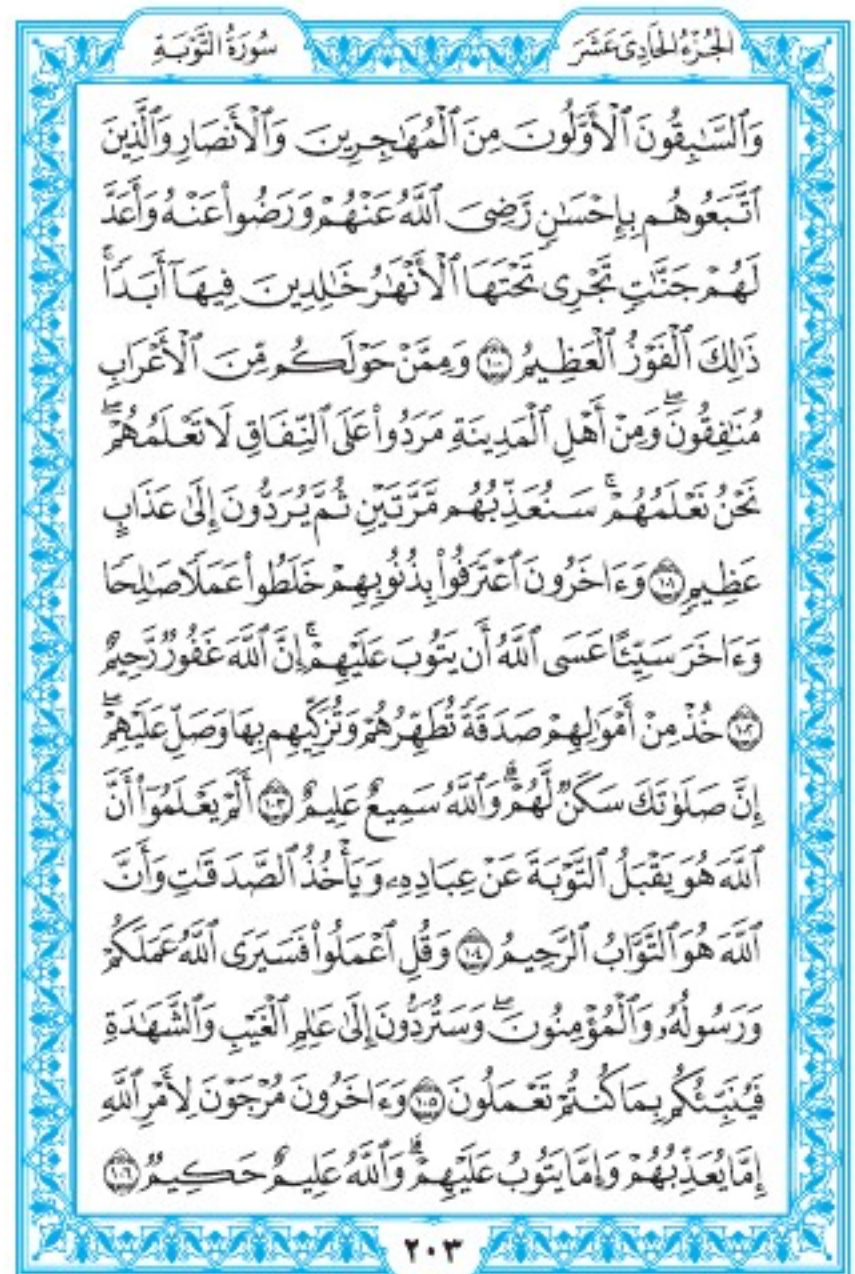 الجُزْءُ الحَادِي عَشَرَ
سُورَةُ التَّوْبَةِ
وَٱلسَّـٰبِقُونَ ٱلْأَوَّلُونَ مِنَ ٱلْمُهَـٰجِرِينَ وَٱلْأَنصَارِ وَٱلَّذِينَ
ٱتَّبَعُوهُم بِإِحْسَـٰنٍ رَّضِىَ ٱللَّهُ عَنْهُمْ وَرَضُوا۟ عَنْهُ وَأَعَدَّ
لَهُمْ جَنَّـٰتٍ تَجْرِى تَحْتَهَا ٱلْأَنْهَـٰرُ خَـٰلِدِينَ فِيهَآ أَبَدًۭا ۚ
ذَٰلِكَ ٱلْفَوْزُ ٱلْعَظِيمُ ١٠٠ وَمِمَّنْ حَوْلَكُم مِّنَ ٱلْأَعْرَابِ
مُنَـٰفِقُونَ ۖ وَمِنْ أَهْلِ ٱلْمَدِينَةِ مَرَدُوا۟ عَلَى ٱلنِّفَاقِ لَا تَعْلَمُهُمْ ۖ
نَحْنُ نَعْلَمُهُمْ ۚ سَنُعَذِّبُهُم مَّرَّتَيْنِ ثُمَّ يُرَدُّونَ إِلَىٰ عَذَابٍ
عَظِيمٍۢ ١٠١ وَءَاخَرُونَ ٱعْتَرَفُوا۟ بِذُنُوبِهِمْ خَلَطُوا۟ عَمَلًۭا صَـٰلِحًۭا
وَءَاخَرَ سَيِّئًا عَسَى ٱللَّهُ أَن يَتُوبَ عَلَيْهِمْ ۚ إِنَّ ٱللَّهَ غَفُورٌۭ رَّحِيمٌ
١٠٢ خُذْ مِنْ أَمْوَٰلِهِمْ صَدَقَةًۭ تُطَهِّرُهُمْ وَتُزَكِّيهِم بِهَا وَصَلِّ عَلَيْهِمْ ۖ
إِنَّ صَلَوٰتَكَ سَكَنٌۭ لَّهُمْ ۗ وَٱللَّهُ سَمِيعٌ عَلِيمٌ ١٠٣ أَلَمْ يَعْلَمُوٓا۟ أَنَّ
ٱللَّهَ هُوَ يَقْبَلُ ٱلتَّوْبَةَ عَنْ عِبَادِهِۦ وَيَأْخُذُ ٱلصَّدَقَـٰتِ وَأَنَّ
ٱللَّهَ هُوَ ٱلتَّوَّابُ ٱلرَّحِيمُ ١٠٤ وَقُلِ ٱعْمَلُوا۟ فَسَيَرَى ٱللَّهُ عَمَلَكُمْ
وَرَسُولُهُۥ وَٱلْمُؤْمِنُونَ ۖ وَسَتُرَدُّونَ إِلَىٰ عَـٰلِمِ ٱلْغَيْبِ وَٱلشَّهَـٰدَةِ
فَيُنَبِّئُكُم بِمَا كُنتُمْ تَعْمَلُونَ ١٠٥ وَءَاخَرُونَ مُرْجَوْنَ لِأَمْرِ ٱللَّهِ
إِمَّا يُعَذِّبُهُمْ وَإِمَّا يَتُوبُ عَلَيْهِمْ ۗ وَٱللَّهُ عَلِيمٌ حَكِيمٌۭ ١٠٦
٢٠٣